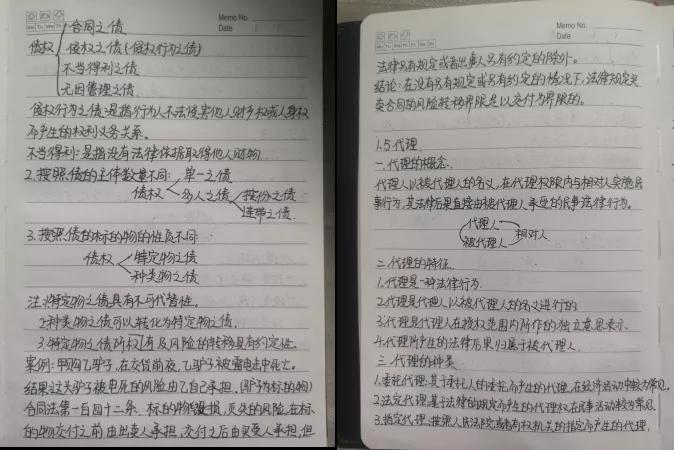 Memo No.
Date
Mo Tu We Th Fr Sa Su
债权
合同之债
侵权之债(侵权行为之债)
不当得利之债
无因管理之债
侵权行为之债:是指行为人不法侵害他人财产权或人身权
而产生的权利义务关系。
不当得利:是指没有法律依据取得他人财物
2.按照债的主体数量不同:
债权
单一之债
多人之债
按份之债
连带之债
3.按照债的标的物的性质不同:
债权
特定物之债
种类物之债
注:1.特定物之债具有不可代替性。
2.种类物之债可以转化为特定物之债.
3.特定物之债所有权及风险的转移具有约定性.
案例:甲购乙驴子,在交货前夜,乙驴子被雷电击中死亡。
结果:这头驴子被电死的风险由乙自己承担.(驴子为标的物)
合同法第一百四十二条.标的物毁损,灭失的风险,在标
的物交付之前由出卖人承担,交付之后由买受人承担,但
Memo No.
Date
Mo Tu We Th Fr Sa Su
法律另有规定或者当事人另有约定的除外。
结论:在没有另有规定或另有约定的情况下,法律规定买
卖合同的风险转移界限是以交付为界限的。
1.5代理
一.代理的概念.
代理人以被代理人的名义,在代理权限内与相对人实施民
事行为,其法律后果直接由被代理人承受的民事法律行为。
代理人
被代理人
相对人
二.代理的特征.
1.代理是一种法律行为.
2.代理是代理人以被代理人的名义进行的
3.代理是代理人在授权范围内所作的独立意思表示.
4.代理所产生的法律后果归属于被代理人.
三.代理的种类
1.委托代理:基于委托人的委托而产生的代理,在经济活动中较为常见.
2.法定代理:基于法律的规定而产生的代理权在民事活动较为常见
3.指定代理:按照人民法院或者有权机关的指定而产生的代理.